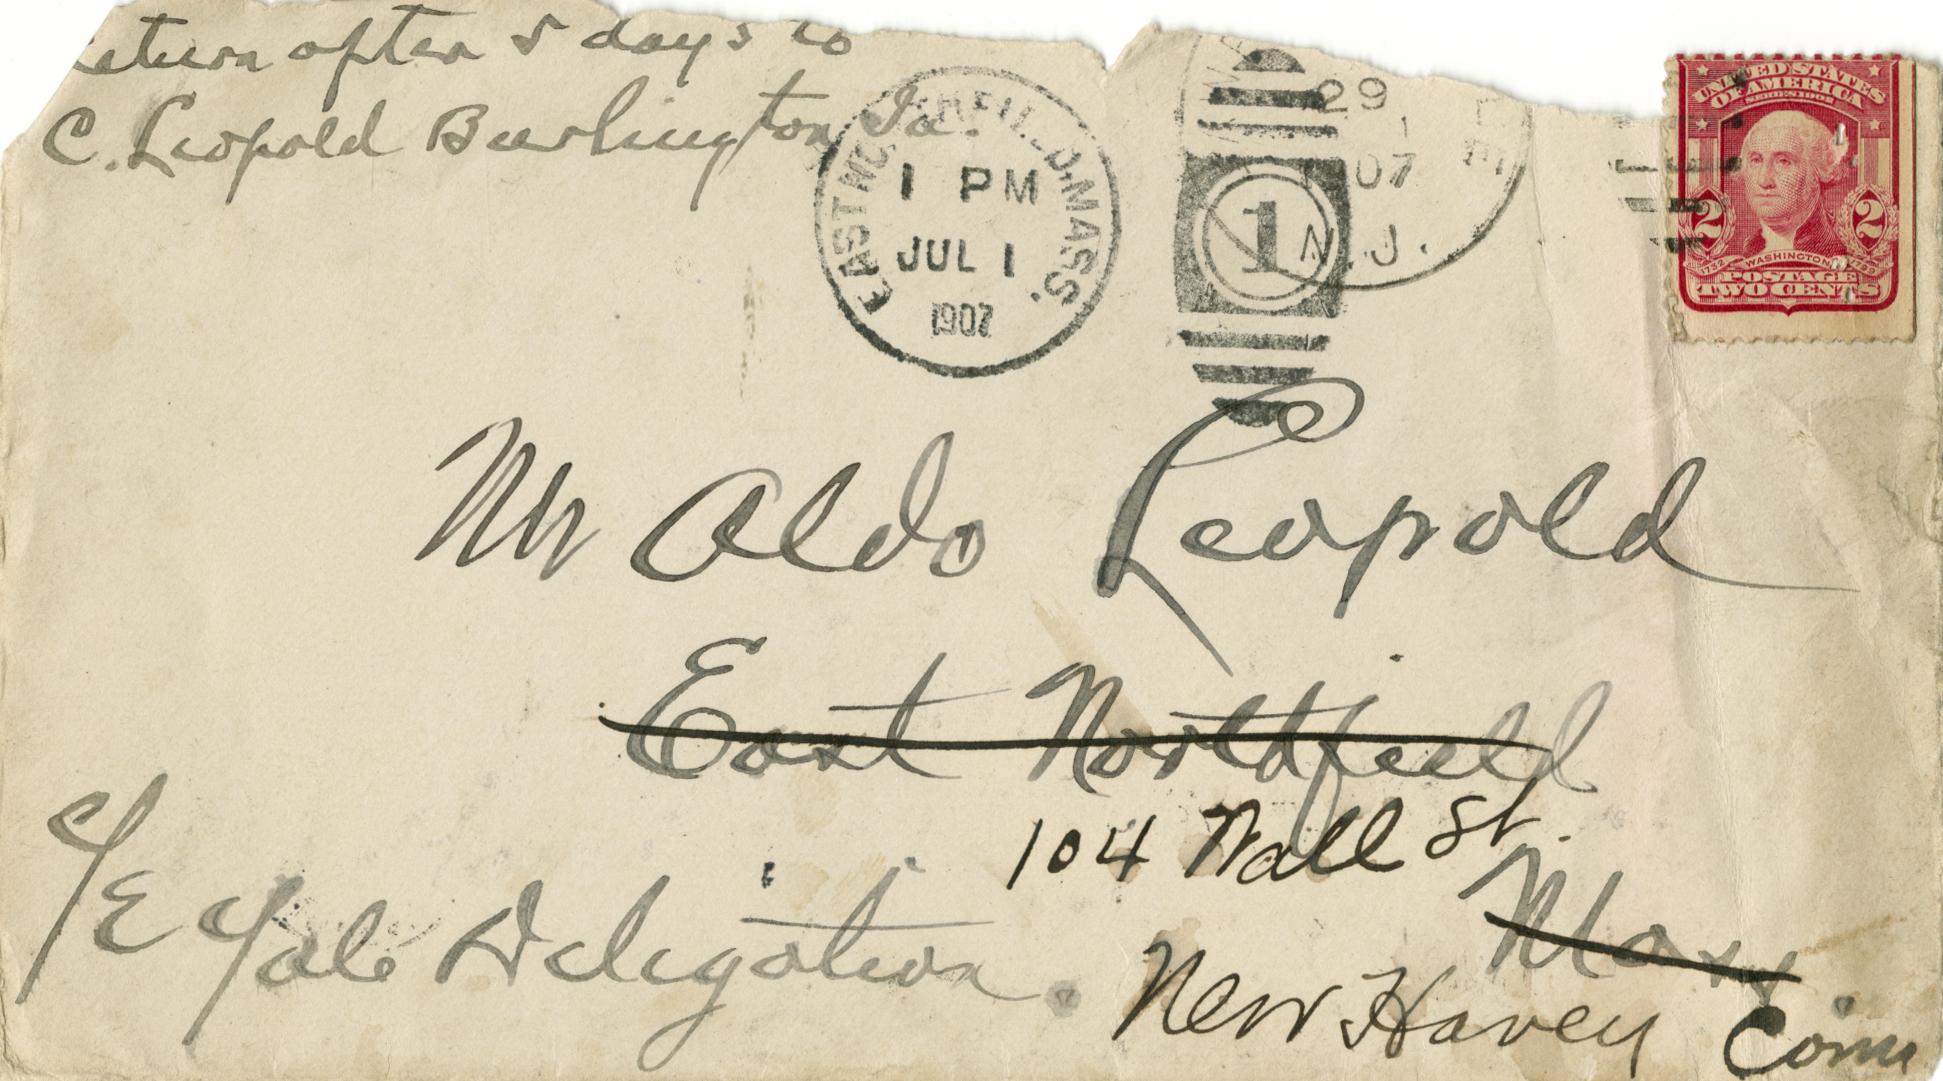 Return after 5 days to
C. Leopold Burlington Ia.
EAST NORTHFIELD, MASS.
1 PM
JUL 1
1907
1
29
07
N.J.
UNITED STATES
OF AMERICA
SERIES 1902
2 2
1732 WASHINGTON 1799
POSTAGE
TWO CENTS
Mr Aldo Leopold
East Northfield
104 Wall St.
Mass
C/E Yale Delegation.
New Haven Conn